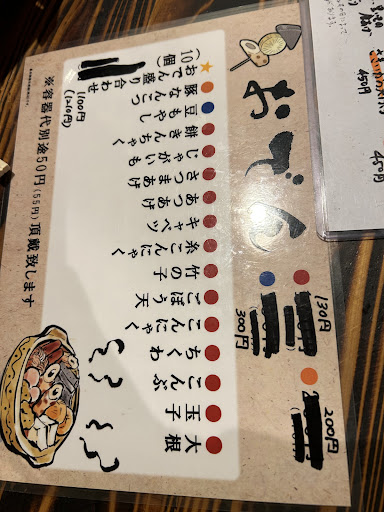 おでん
130円
200円
300円
大根
玉子
こんぶ
ちくわ
こんにゃく
ごぼう天
竹の子
糸こんにゃく
キャベツ
あつあげ
さつまあげ
じゃがいも
餅きんちゃく
豆もやし
豚なんこつ
おでん盛り合わせ
(10個)
1100円
(1210円)
※容器代別途50円(55円)頂戴致します
450円